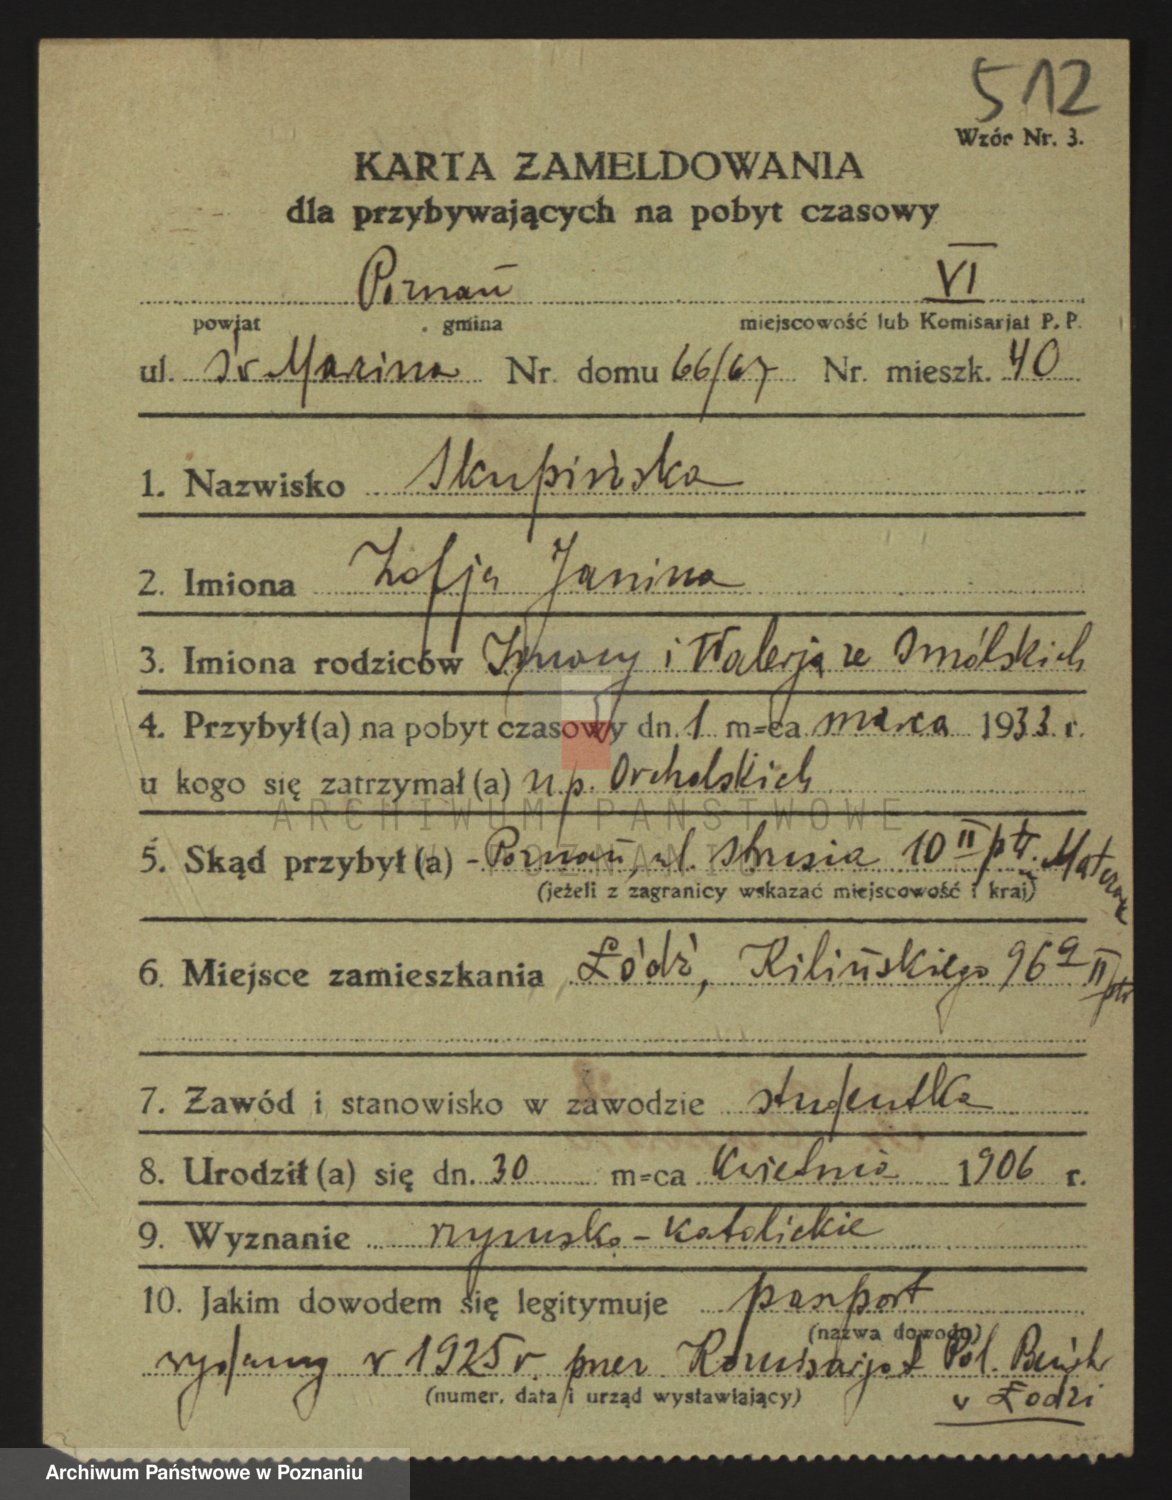 512
Wzór Nr. 3.
KARTA ZAMELDOWANIA
dla przybywających na pobyt czasowy
Poznań VI
powjat gmina miejscowość lub Komisarjat P. P.
ul. Św Marcina Nr. domu 66/67 Nr. mieszk. 40
1. Nazwisko Skupińska
2. Imiona Zofja Janina
3. Imiona rodziców Ignacy i Walerja ze Smólskich
4. Przybył(a) na pobyt czasowy dn. 1 m=ca marca 1933 r.
u kogo się zatrzymał(a) u p. Orchelskich
ARCHIWUM PAŃSTWOWE
W POZNANIU
5. Skąd przybył(a) - Poznań, ul. Strusia 10 II ptr.
(jeżeli z zagranicy wskazać miejscowość i kraj)
6. Miejsce zamieszkania Łódź, Kilińskiego 96a II ptr
7. Zawód i stanowisko w zawodzie studentka
8. Urodził(a) się dn. 30 m=ca kwietnia 1906 r.
9. Wyznanie rzymsko-katolickie
10. Jakim dowodem się legitymuje paszport
(nazwa dowodu)
wydany w 1925 r. przez Komisarjat Pol.
(numer, data i urząd wystawiający)
w Łodzi
Archiwum Państwowe w Poznaniu